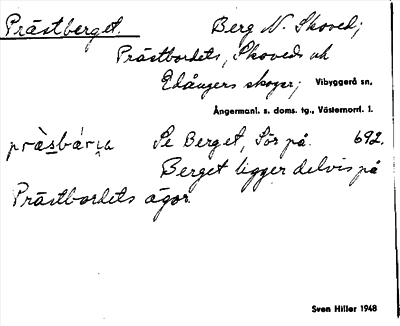 Prästberget. Berg N. Skoved;
Prästbordets, Skoveds och
Edångers skogar; Vibyggerå sn,
Ångermanl. s. doms. tg., Västernorrl. l.
pràsbárɩa Se Berget, Sör på. 692.
Berget ligger delvis på
Prästbordets ägor.
Sven Hiller 1948